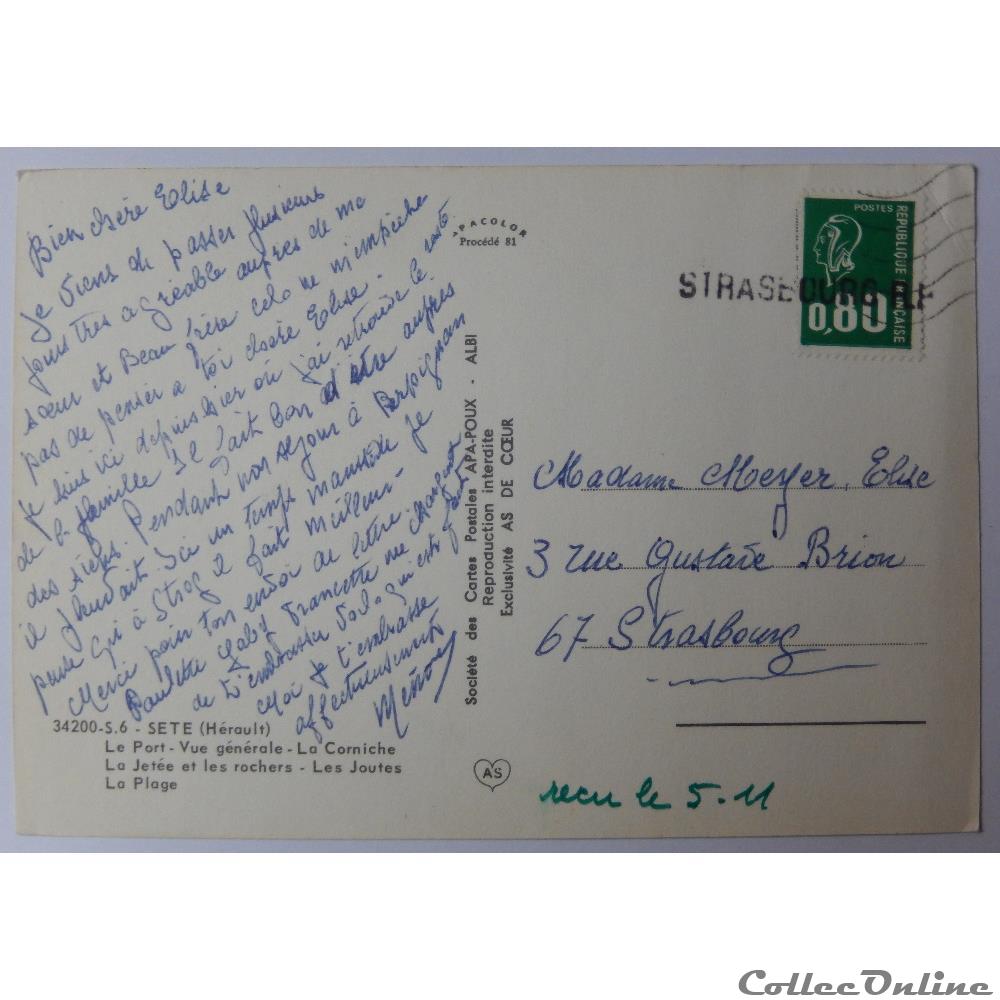 Bien chère Elise
Je viens de passer plusieurs
jours très agréable auprès de ma
sœur et Beau frère cela ne m'empêche
pas de penser a toi chère Elise.
Je suis ici depuis hier ou j'ai retrouvé le reste
de la famille Il fait bon d'être auprès
des siens. Pendant mon séjour à Perpignan
il faisait un temps maussade je
pense qu'à Strbg il fait meilleur-
Merci pour ton envoi de lettre.
Paulette Gaby Francette me chargent
de t'embrasser
Moi je t'embrasse
affectueusement
34200-S.6 - SETE (Hérault)
Le Port - Vue générale - La Corniche
La Jetée et les rochers - Les Joutes
La Plage
APACOLOR
Procédé 81
Société des Cartes Postales APA-POUX - ALBI
Reproduction interdite
Exclusivité AS DE CŒUR
AS
POSTES
REPUBLIQUE FRANÇAISE
0,80
STRASBOURG R.F
Madame Meyer, Elise
3 rue Gustave Brion
67 Strasbourg
recu le 5.11
CollecOnline